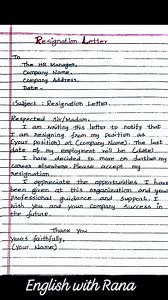 Resignation Letter
To
The HR Manager,
Company Name,
Company Address,
Date -
(Subject : Resignation Letter
Respected Sir/Madam,
I am writing this letter to notify that
I am resigning from my position as
(your position) at (Company Name). The last
date of my employment will be (date)
I have decided to move on further my
career elsewhere. Please accept my
resignation
I appreciate the opportunities I have
been given at this organization and your
professional guidance and support. I
wish you and your company success in
the future.
Thank You
Yours faithfully,
(Your Name)
English with Rana